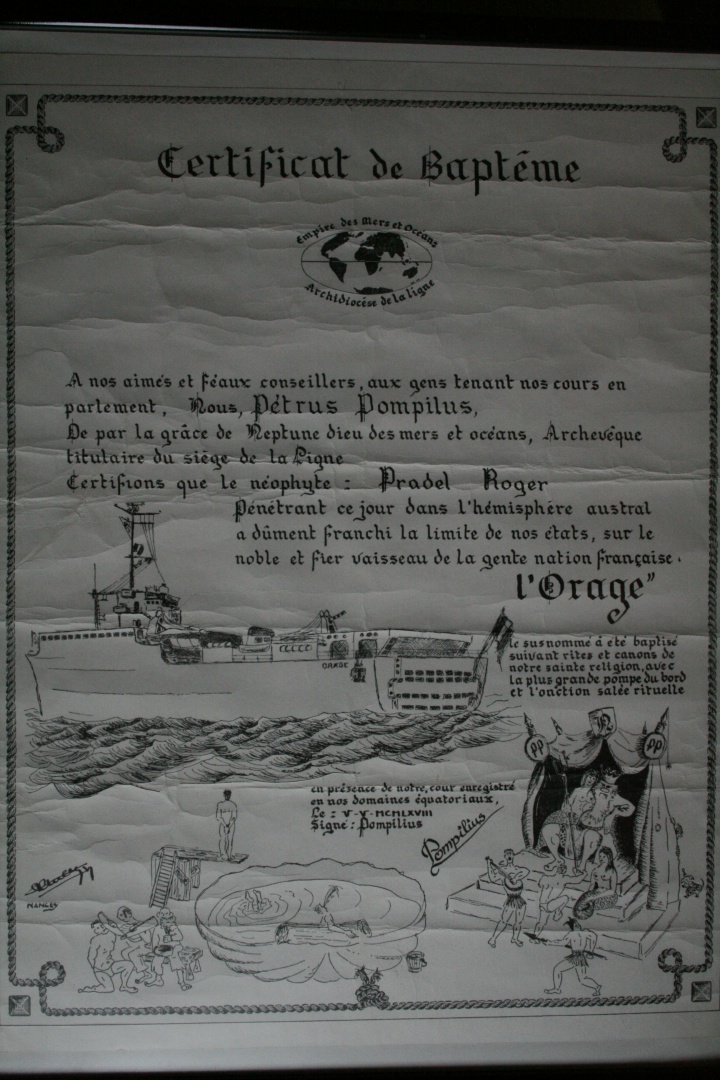 Certificat de Baptême
Empire des Mers et Océans
Archidiocèse de la ligne
A nos aimés et féaux conseillers, aux gens tenant nos cours en
parlement, Nous, Pétrus Pompilus,
De par la grâce de Neptune dieu des mers et océans, Archevêque
titulaire du siège de la Ligne
Certifions que le néophyte : Pradel Roger
Pénétrant ce jour dans l'hémisphère austral
a dûment franchi la limite de nos états, sur le
noble et fier vaisseau de la gente nation française.
l'Orage"
ORAGE
le susnommé à été baptisé
suivant rites et canons de
notre sainte religion, avec
la plus grande pompe du bord
et l'onction salée rituelle
PP
PP
en présence de notre, cour enregistré
en nos domaines équatoriaux,
Le : V-V-MCMLXVIII
Signé : Pompilius
Pompilius